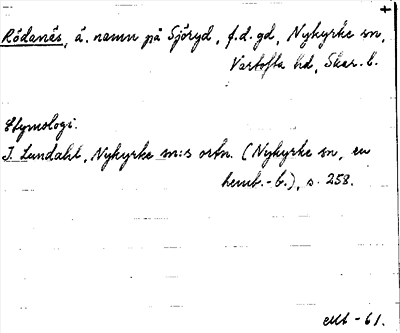 +
Rödanäs, ä. namn på Sjöryd, f.d. gd, Nykyrke sn,
Vartofta hd, Skar. l.
Etymologi.
I. Lundahl, Nykyrke sn:s ortn. (Nykyrke sn, en
hemb.-b.), s. 258.
-61.